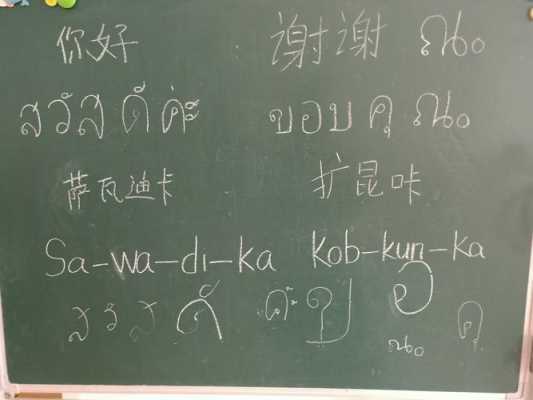 你好 谢谢 ณ
สวัสดีค่ะ ขอบคุณ
萨瓦迪卡 扩昆咔
Sa-wa-di-ka Kob-kun-ka
ส ว ส ดี ค่ะ ข อ ณ คุ